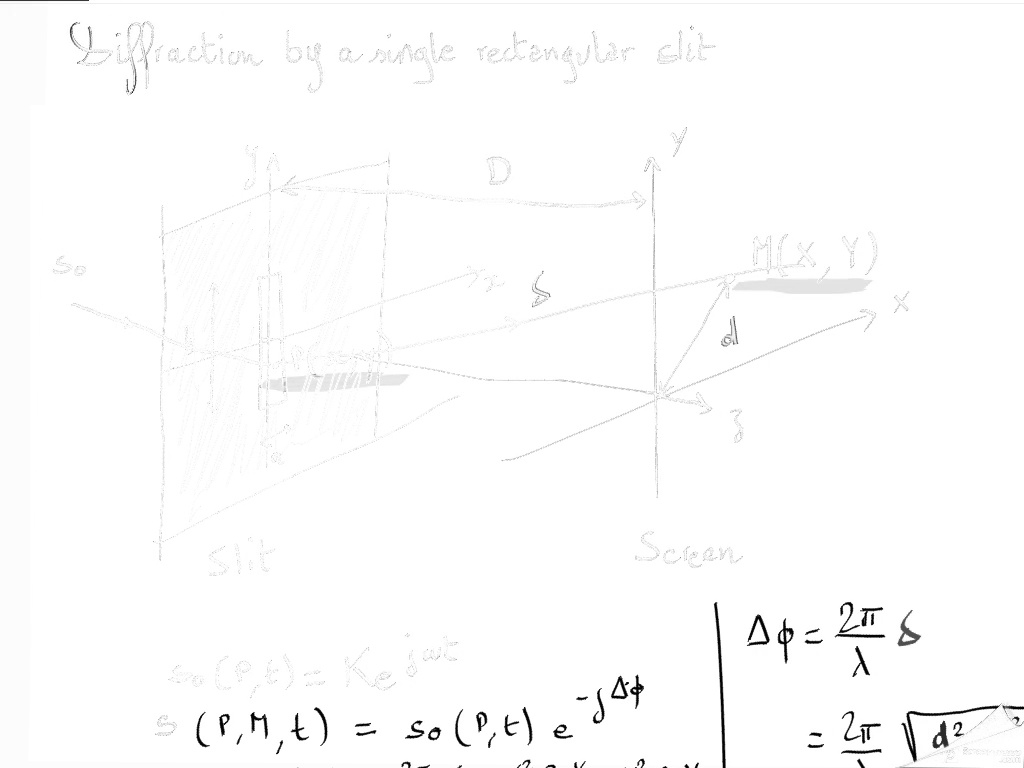 Diffraction by a single rectangular slit
y
Y
D
M(X, Y)
s₀
x
δ
X
d
b
P(x,y)
z
a
Slit
Screen
Δϕ = 2π/λ δ
s₀(P,t) = K e^{jωt}
s (P,M,t) = s₀(P,t) e^{-jΔϕ}
= 2π/λ √d²